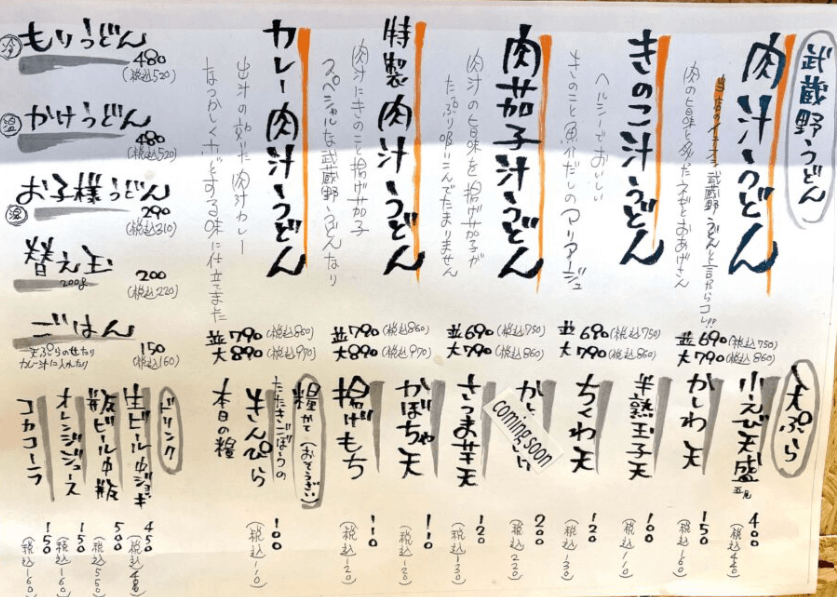 武蔵野うどん
肉汁うどん
当店のイチオシ 武蔵野うどんと言ったらコレ!!
肉の旨味と多めネギとおあげさん
並 690 (税込750)
大 790 (税込860)
きのこ汁うどん
ヘルシーでおいしい
きのこと魚介だしのマリアージュ
並 690 (税込750)
大 790 (税込860)
肉茄子汁うどん
肉汁の旨味を揚げ茄子が
たっぷり吸いこんでたまりません
並 690 (税込750)
大 790 (税込860)
特製肉汁うどん
肉汁にきのこと揚げ茄子
スペシャルな武蔵野うどんなり
並 790 (税込860)
大 890 (税込970)
カレー肉汁うどん
出汁の効いた肉汁カレー
なつかしくホッとする味に仕立てました
並 790 (税込860)
大 890 (税込970)
冷 もりうどん
480
(税込520)
温 かけうどん
480
(税込520)
お子様うどん
温 290
(税込310)
替え玉
200g 200
(税込220)
ごはん
150
(税込160)
天ぷらのせたり
カレー汁に入れたり
天ぷら
小えび天盛 400 (税込440)
かしわ天 150 (税込160)
半熟玉子天 100 (税込110)
ちくわ天 120 (税込130)
coming soon
200 (税込220)
さつま芋天 120 (税込130)
かぼちゃ天 110 (税込120)
揚げもち 110 (税込120)
糧 かて (おそうざい)
たたきごぼうの
きんぴら 100 (税込110)
本日の糧
ドリンク
生ビール中ジョッキ 450
瓶ビール中瓶 500 (税込550)
オレンジジュース 150 (税込160)
コカコーラ 150 (税込160)